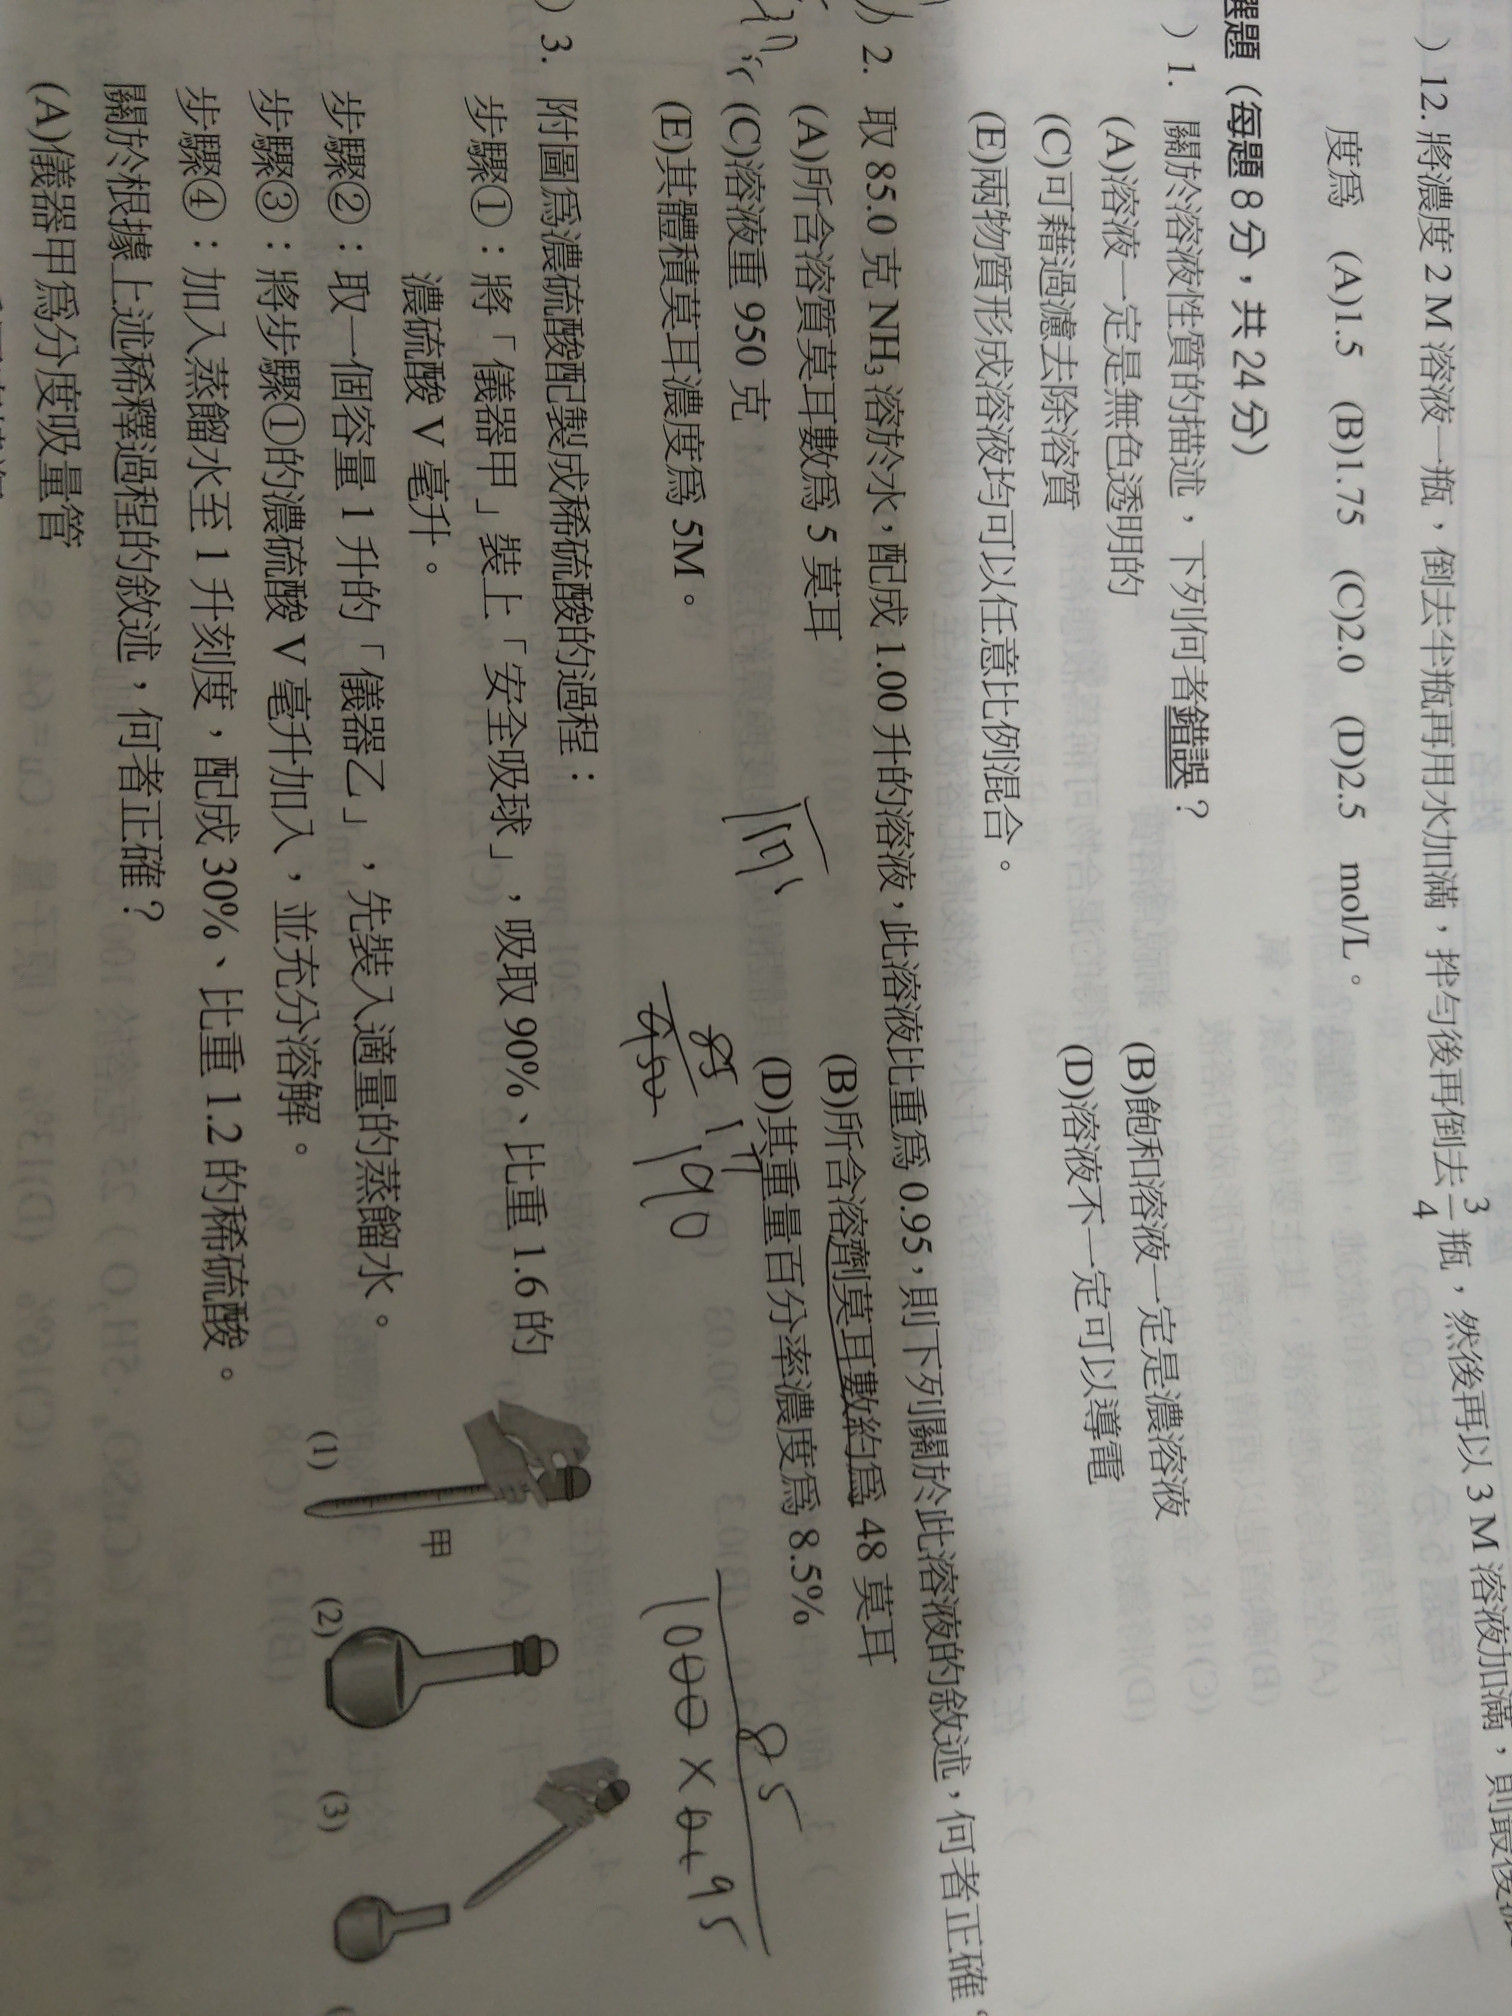 ) 12. 將濃度 2 M 溶液一瓶，倒去半瓶再用水加滿，拌勻後再倒去 3/4 瓶，然後再以 3 M 溶液加滿，則最後
度為 (A)1.5 (B)1.75 (C)2.0 (D)2.5 mol/L。
選題（每題 8 分，共 24 分）
) 1. 關於溶液性質的描述，下列何者錯誤？
(A)溶液一定是無色透明的 (B)飽和溶液一定是濃溶液
(C)可藉過濾去除溶質 (D)溶液不一定可以導電
(E)兩物質形成溶液均可以任意比例混合。
) 2. 取 85.0 克 NH₃ 溶於水，配成 1.00 升的溶液，此溶液比重為 0.95，則下列關於此溶液的敘述，何者正確
(A)所含溶質莫耳數為 5 莫耳 (B)所含溶劑莫耳數約為 48 莫耳
(C)溶液重 950 克 (D)其重量百分率濃度為 8.5%
(E)其體積莫耳濃度為 5M。
85 17
950 190
85
1000 × 0.95
) 3. 附圖為濃硫酸配製成稀硫酸的過程：
步驟①：將「儀器甲」裝上「安全吸球」，吸取 90%、比重 1.6 的
濃硫酸 V 毫升。
步驟②：取一個容量 1 升的「儀器乙」，先裝入適量的蒸餾水。
步驟③：將步驟①的濃硫酸 V 毫升加入，並充分溶解。
步驟④：加入蒸餾水至 1 升刻度，配成 30%、比重 1.2 的稀硫酸。
甲
(1) (2) (3)
關於根據上述稀釋過程的敘述，何者正確？
(A)儀器甲為分度吸量管